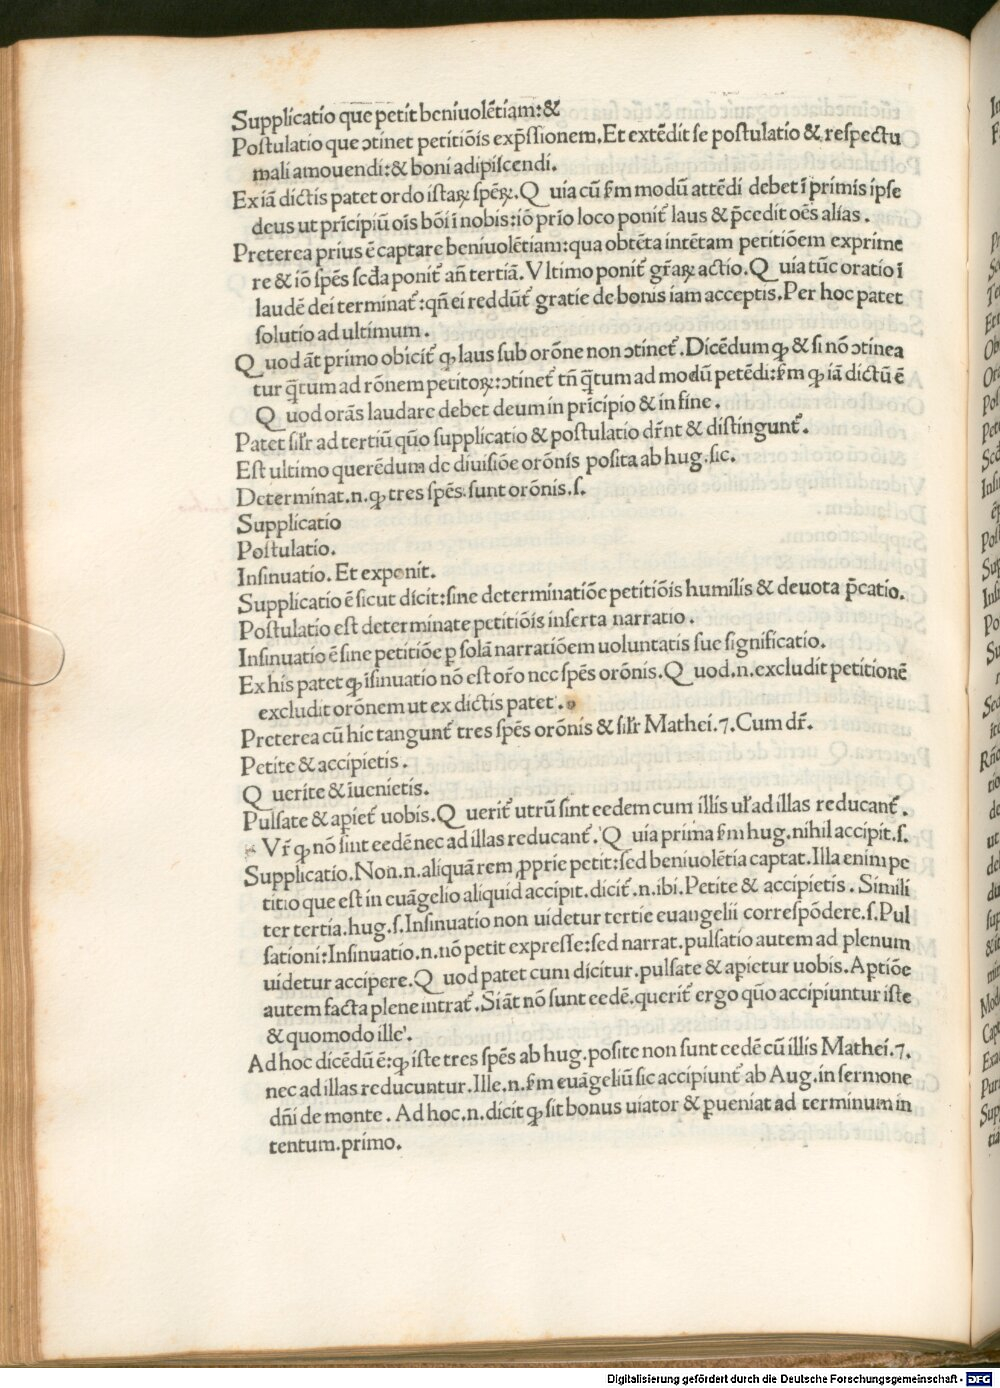 Supplicatio que petit beniuolētiam:&
Postulatio que ↄtinet petitiōis exp̄ssionem.Et extēdit se postulatio & respectu
mali amouendi:& boni adipiscendi.
Ex iā dictis patet ordo istaꝝ spēꝝ.Q uia cū ẜm modū attēdi debet ī primis ipse
deus ut prīcipiū oīs bōi ī nobis:iō prīo loco ponit᷑ laus & p̄cedit oēs alias.
Preterea prius ē captare beniuolētiam:qua obtēta intētam petitiōem exprime
re & iō spēs scd̄a ponit᷑ an̄ tertiā.Vltimo ponit᷑ gr̄aꝝ actio.Q uia tūc oratio ī
laudē dei terminat᷑:qn̄ ei reddūt᷑ gratie de bonis iam acceptis.Per hoc patet
solutio ad ultimum.
Q uod āt primo obicit᷑ ꝙ laus sub orōne non ↄtinet᷑.Dicēdum ꝙ & si nō ↄtinea
tur q̄tum ad rōnem petitoꝝ:ↄtinet᷑ tn̄ q̄tum ad modū petēdi:ẜm ꝙ iā dictū ē
Q uod orās laudare debet deum in prīcipio & in fine.
Patet sil̄r ad tertiū quō supplicatio & postulatio dr̄nt & distingunt᷑.
Est ultimo querēdum de diuisiōe orōnis posita ab hug.sic.
Determinat.n.ꝙ tres spēs sunt orōnis.s.
Supplicatio
Postulatio.
Insinuatio.Et exponit.
Supplicatio ē sicut dicit:sine determinatiōe petitiōis humilis & deuota p̄catio.
Postulatio est determinate petitiōis inserta narratio.
Insinuatio ē sine petitiōe ꝑ solā narratiōem uoluntatis sue significatio.
Ex his patet ꝙ īsinuatio nō est or̄o nec spēs orōnis.Q uod.n.excludit petitionē
excludit orōnem ut ex dictis patet.
Preterea cū hic tangunt᷑ tres spēs orōnis & sil̄r Mathei.7.Cum dr̄.
Petite & accipietis.
Q uerite & īuenietis.
Pulsate & apiet᷑ uobis.Q uerit᷑ utrū sint eedem cum illis ul̄ ad illas reducant᷑.
Vr̄ ꝙ nō sint eedē nec ad illas reducant᷑.Q uia prima ẜm hug.nihil accipit.s.
Supplicatio.Non.n.aliquā rem ꝓprie petit:sed beniuolētia captat.Illa enim pe
titio que est in euāgelio aliquid accipit.dicit᷑.n.ibi.Petite & accipietis.Simili
ter tertia.hug.s.Insinuatio non uidetur tertie euangelii correspōdere.s.Pul
sationi:Insinuatio.n.nō petit expresse:sed narrat.pulsatio autem ad plenum
uidetur accipere.Q uod patet cum dicitur.pulsate & apietur uobis.Aptiōe
autem facta plene intrat᷑.Si āt nō sunt eedē.querit᷑ ergo quō accipiuntur iste
& quomodo ille.
Ad hoc dicēdū ē:ꝙ iste tres spēs ab hug.posite non sunt eedē cū illis Mathei.7.
nec ad illas reducuntur.Ille.n.ẜm euāgeliū sic accipiunt᷑ ab Aug.in sermone
dn̄i de monte.Ad hoc.n.dicit ꝙ sit bonus uiator & ꝑueniat ad terminum in
tentum.primo.
Digitalisierung gefördert durch die Deutsche Forschungsgemeinschaft - DFG